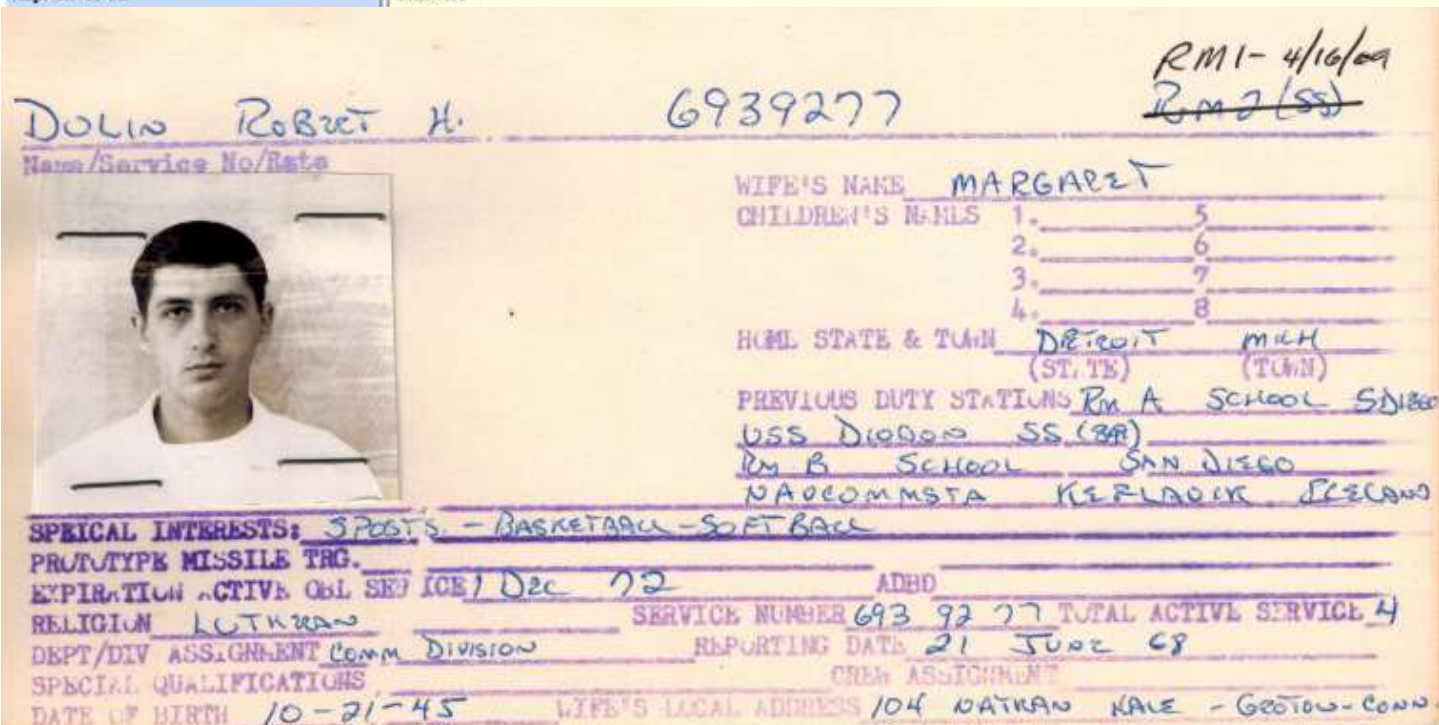 RM1- 4/16/69
DOLIN ROBERT H. 6939277 RM2(SS)
Name/Service No/Rate
WIFE'S NAME MARGARET
CHILDREN'S NAMES 1. 5
2. 6
3. 7
4. 8
HOME STATE & TOWN DETROIT MICH
(STATE) (TOWN)
PREVIOUS DUTY STATIONS RM A SCHOOL SDIEGO
USS DIODON SS (349)
RM B SCHOOL SAN DIEGO
NAVCOMMSTA KEFLAVIK ICELAND
SPEICAL INTERESTS: SPORTS - BASKETBALL - SOFTBALL
PROTOTYPE MISSILE TRG.
EXPIRATION ACTIVE OBL SERVICE 1 DEC 72 ADBD
RELIGION LUTHERAN SERVICE NUMBER 693 92 77 TOTAL ACTIVE SERVICE 4
DEPT/DIV ASSIGNMENT COMM DIVISION REPORTING DATE 21 JUNE 68
SPECIAL QUALIFICATIONS CREW ASSIGNMENT
DATE OF BIRTH 10-21-45 WIFE'S LOCAL ADDRESS 104 NATHAN HALE - GROTON - CONN.